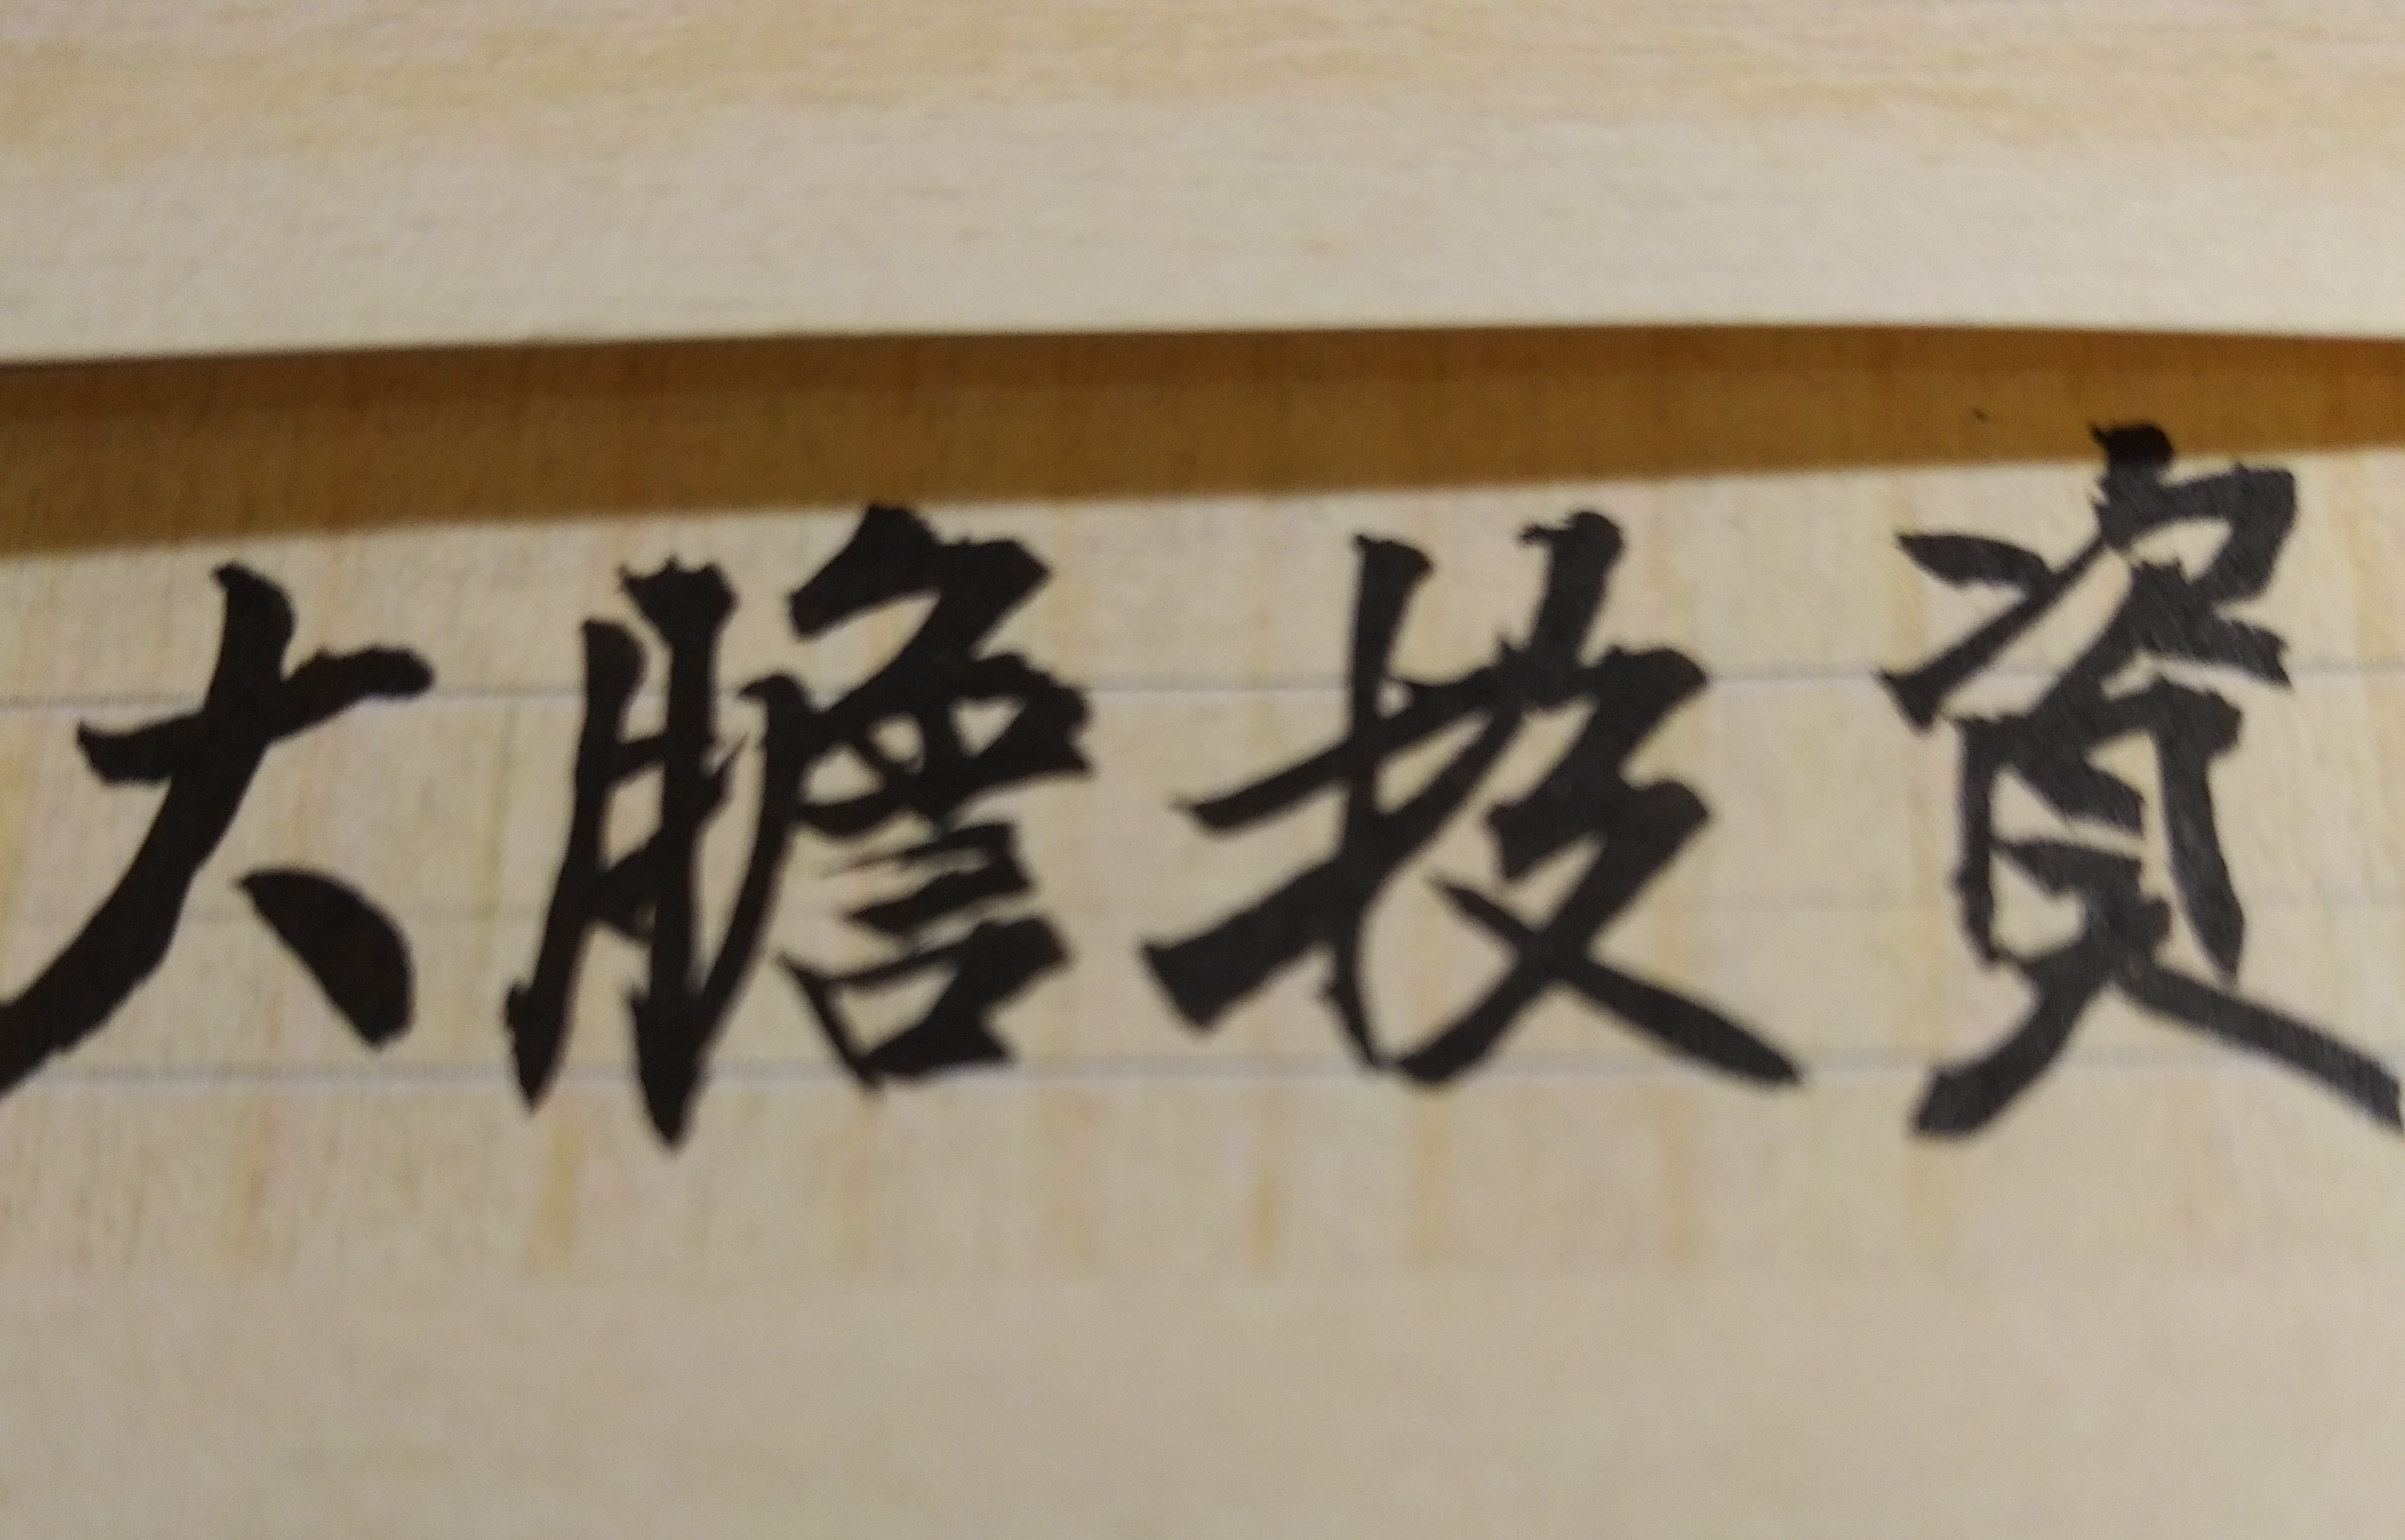 大膽投資